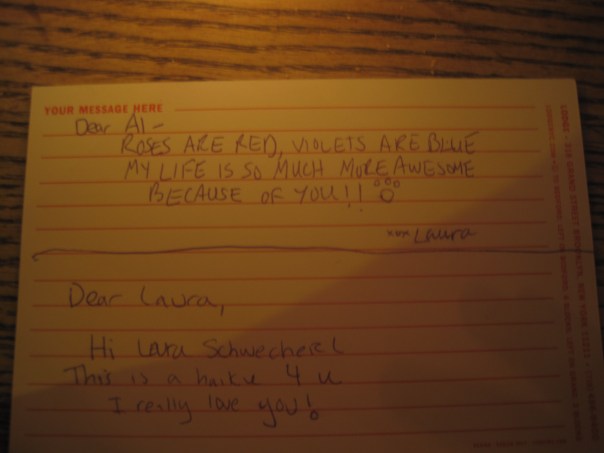 YOUR MESSAGE HERE
Dear Al -
ROSES ARE RED, VIOLETS ARE BLUE
MY LIFE IS SO MUCH MORE AWESOME
BECAUSE OF YOU!!
xxx Laura
Dear Laura,
Hi Lara
This is a haiku 4 u
I really love you!